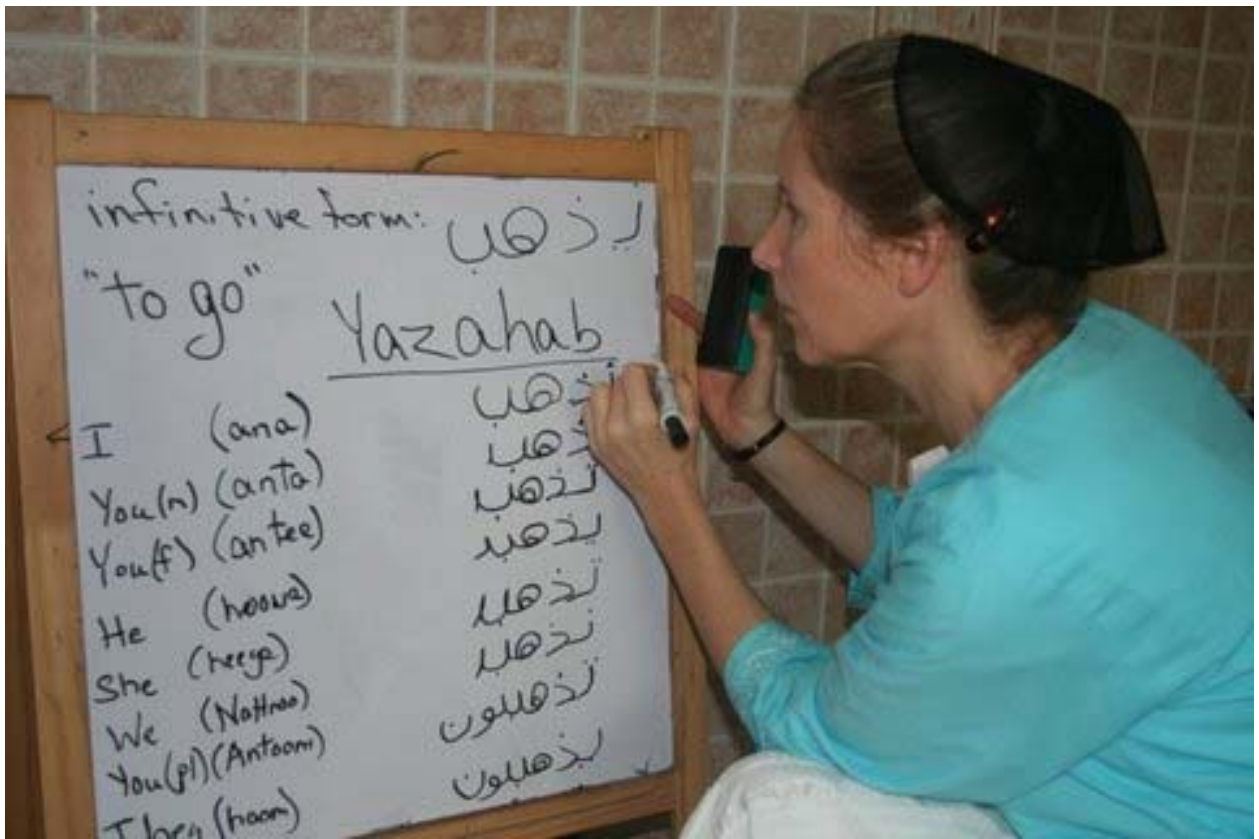 infinitive form: يذهب
"to go"
Yazahab
I (ana) ذهب
You(m) (anta) ذهب
You(f) (antee) تذهب
He (hoowa) يذهبـ
She (heeya) تذهبـ
We (Nahnoo) نذهبـ
You(pl) (Antoom) تذهبون
They (hoom) يذهبون